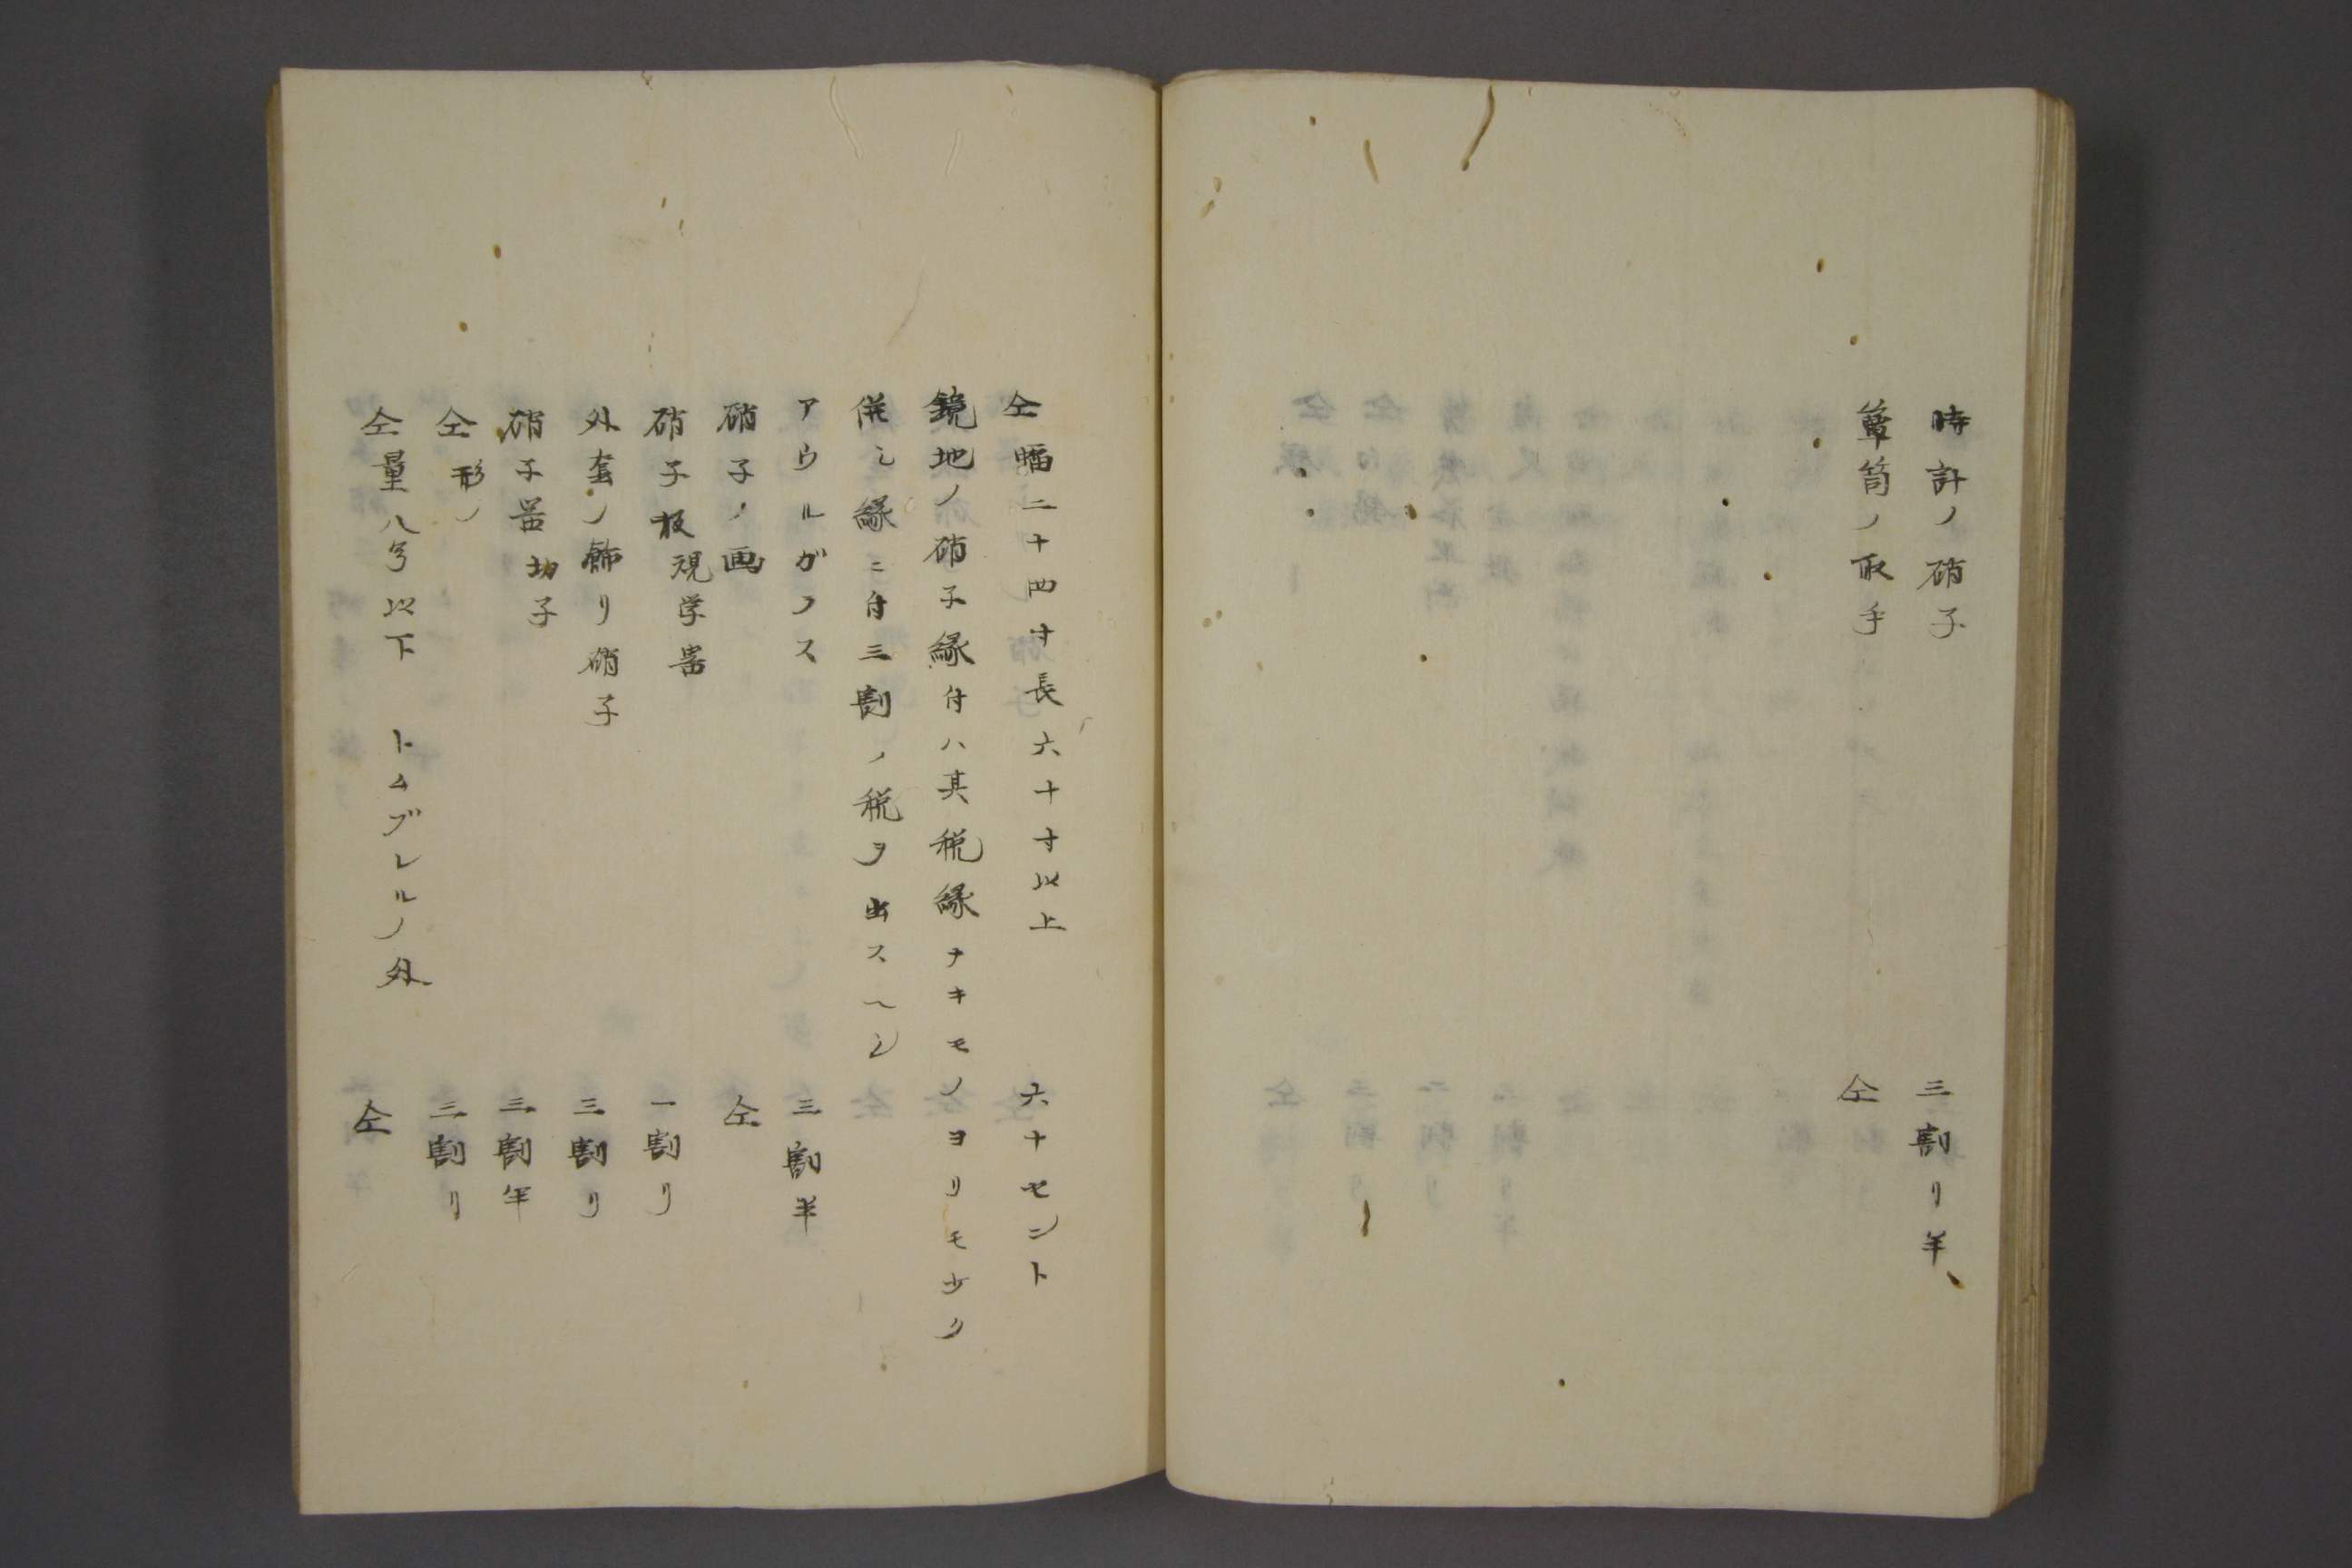 時計ノ硝子 三割リ半
簞筒ノ取手 仝
仝幅二十四寸長六十寸以上 六十セント
鏡地ノ硝子縁付ハ其税縁ナキモノヨリモ少ク
併シ縁ニ付三割ノ税ヲ出スヘシ
アウルガフス 三割半
硝子ノ画 仝
硝子板視学器 一割リ
外套ノ飾リ硝子 三割リ
硝子器切子 三割半
仝形ノ 三割リ
仝量八号以下 トムブレルノ外 仝